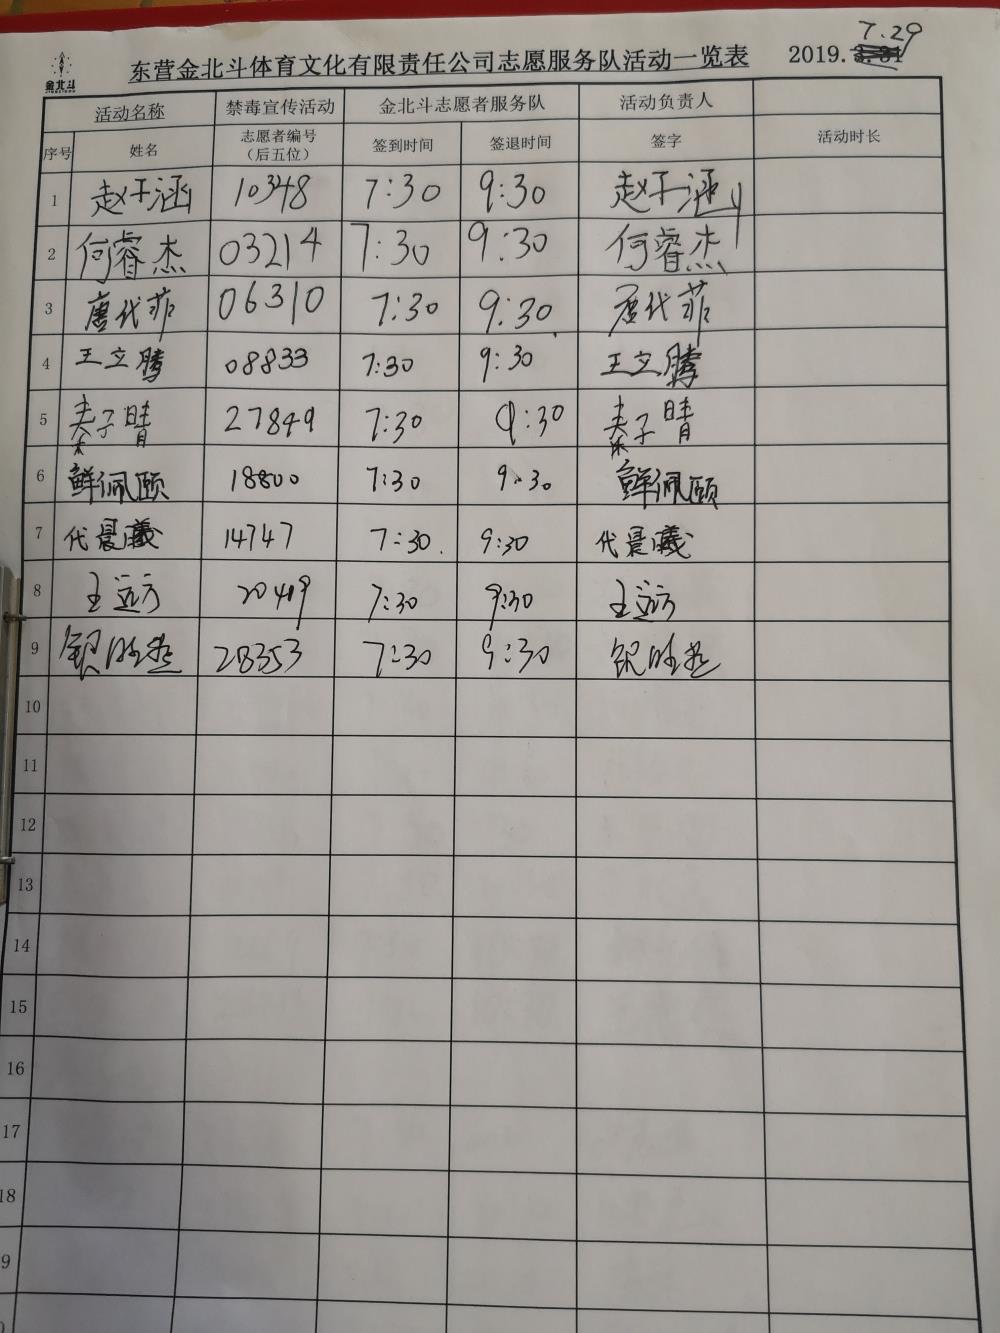 7.29
金北斗
东营金北斗体育文化有限责任公司志愿服务队活动一览表 2019.
活动名称 禁毒宣传活动 金北斗志愿者服务队 活动负责人
序号 姓名 志愿者编号（后五位） 签到时间 签退时间 签字 活动时长
1 赵于涵 10348 7:30 9:30 赵于涵
2 何睿杰 03214 7:30 9:30 何睿杰
3 唐代菲 06310 7:30 9:30 唐代菲
4 王立腾 08833 7:30 9:30 王立腾
5 子晴 27849 7:30 9:30 子晴
6 鲜佩颐 18800 7:30 9:30 鲜佩颐
7 代晨曦 14747 7:30 9:30 代晨曦
8 王远方 20419 7:30 9:30 王远方
9 28353 7:30 9:30
10
11
12
13
14
15
16
17
18
9